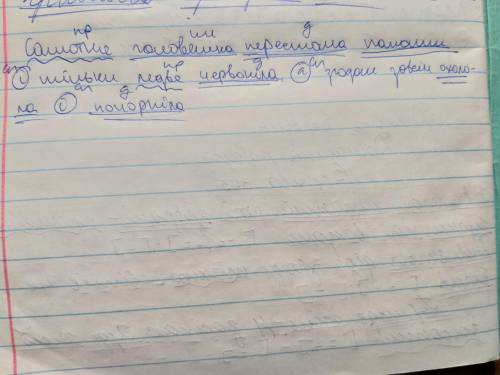 пр ім д
Самотнє головешка перестала палати
сп пр д сп
і тільки ледве червоніла а згодом зовсім охоло-
сп д
ла і почорніла